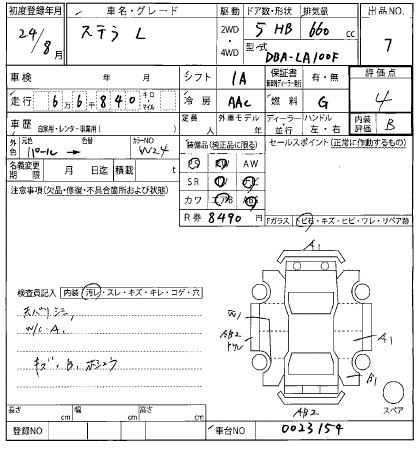 初度登録年月 車名・グレード 駆動 ドア数・形状 排気量 出品NO.
24/8月 ステラ L 2WD・4WD 5 HB 660 cc 7
型式 DBA-LA100F
車検 年 月 シフト IA 保証書 有・無 評価点
走行 6万6千840 キロ・マイル 冷房 AAC 燃料 G 4
車歴 自家用・レンタ・事業用( ) 定員 人 外車モデル 年 ディーラー・並行 ハンドル 左・右 内装評価 B
外色 元色 パール → 色替 カラーNO W24 装備品(純正品に限る) セールスポイント(正常に作動するもの)
名義変更期限 月 日迄 積載 t PS PW AW
注意事項(欠品・修復・不具合箇所および状態) SR TV ナビ
カワ エアB ABS
R券 8490円
Fガラス トビ石・キズ・ヒビ・ワレ・リペア跡
A1
検査員記入 内装 汚レ・スレ・キズ・キレ・コゲ・穴
天バリシミ
W/C・A
キズ、B、
W1
AB2
A1
B1
AB2
スペア
長さ cm 幅 cm 高さ cm
登録NO 車台NO 0023154